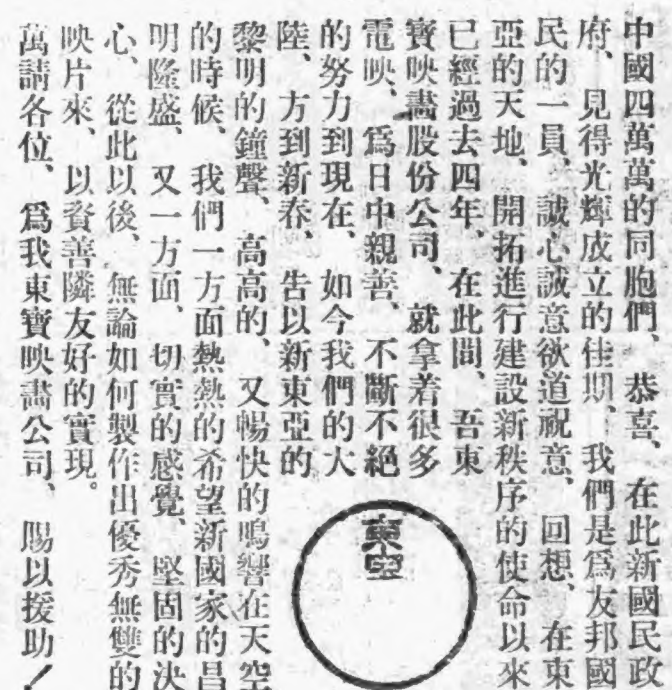 中國四萬萬的同胞們、恭喜、在此新國民政
府、見得光輝成立的佳期、我們是爲友邦國
民的一員、誠心誠意欲道祝意、回想、在東
亞的天地、開拓進行建設新秩序的使命以來
已經過去四年、在此間、吾東
寶映畵股份公司、就拿着很多
電映、爲日中親善、不斷不絕
的努力到現在、如今我們的大
陸、方到新春、告以新東亞的
黎明的鐘聲、高高的、又暢快的鳴響在天空
的時候、我們一方面熱熱的希望新國家的昌
明隆盛、又一方面、切實的感覺、堅固的決
心、從此以後、無論如何製作出優秀無雙的
映片來、以資善隣友好的實現。
萬請各位、爲我東寶映畵公司、賜以援助！
東宝